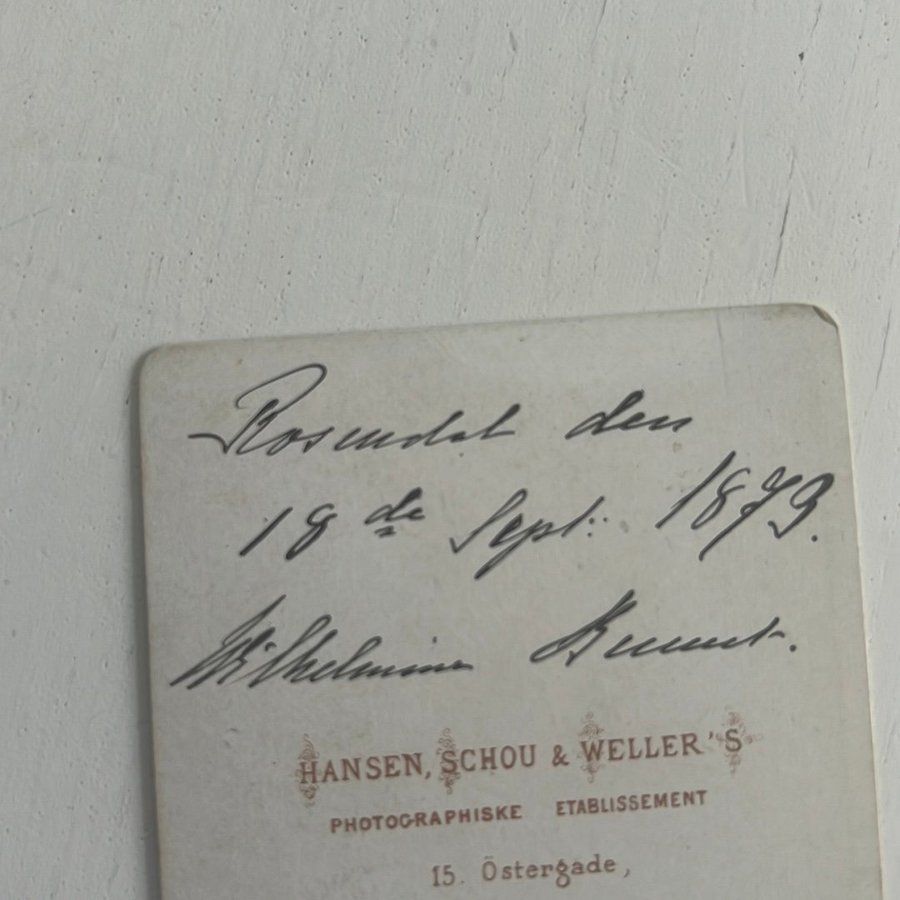 Rosendal den
18de Sept: 1873.
Wilhelmine
HANSEN, SCHOU & WELLER'S
PHOTOGRAPHISKE ETABLISSEMENT
15. Östergade,